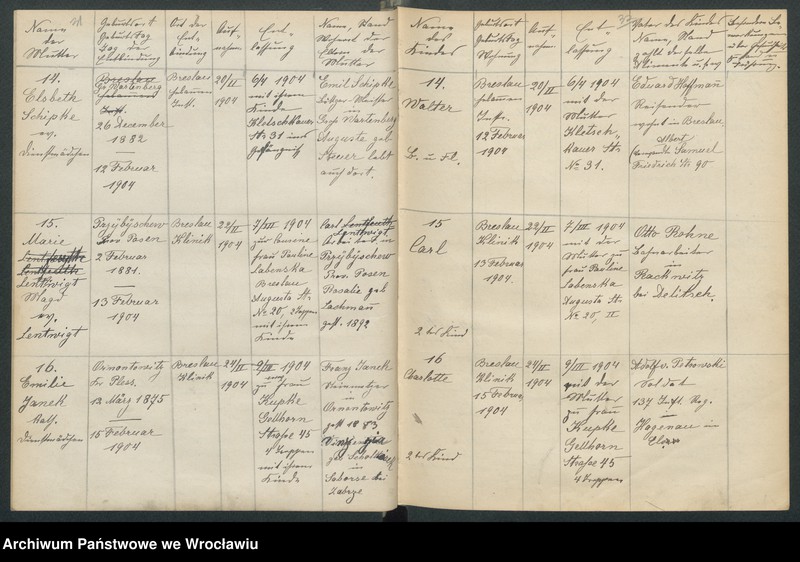 Name
der
Mutter
Geburtsort
Geburtstag
Tag der
Entbindung
Ort der
Ent-
bindung
Auf-
nahme
Ent-
lassung
Name, Stand
Wohnort der
Eltern der
Mutter
Name
des
Kindes
Geburtsort
Geburtstag
Wohnung
Auf-
nahme
Ent-
lassung
Vater des Kindes
Name, Stand
14.
Elsbeth
Schipke
ev.
Dienstmädchen
Breslau
Gr Wartenberg
26 Dezember
1882
12 Februar
1904
Breslau
Hebammen
Inst.
20/II
1904
6/4 1904
mit ihrem
Kinde
Kletschkauer
Str 31 und
Gefängnis
Emil Schipke
in
Groß Wartenberg
Auguste geb
lebt
auch dort.
14.
Walter
Breslau
Hebammen
Instit.
12 Februar
1904
20/II
1904
6/4 1904
mit der
Mutter
Kletsch-
kauer Str
No 31.
Eduard Hoffmann
Reisender
wohnt in Breslau
Albert
Samuel
Friedrich Str 90
15.
Marie
Lentwigt
Magd
ev.
Lentwigt
Przybyschew
Prov Posen
2 Februar
1881.
13 Februar
1904
Breslau
Klinik
22/II
1904
7/III 1904
zur Amme
Frau Pauline
Labenska
Breslau
Augusta Str
No 20, 2 Treppen
mit ihrem
Kinde
Carl
Lentwigt
Arbeiter in
Przybyschew
Prov. Posen
Rosalie geb
Lachmann
gest. 1892
15
Carl
2 tes Kind
Breslau
Klinik
13 Februar
1904.
22/II
1904
7/III 1904
mit der
Mutter zu
Frau Pauline
Labenska
Augusta Str
No 20, II
Otto Rohne
Bahnarbeiter
in
Rackwitz
bei Delitzsch.
16.
Emilie
Janek
Kath.
Dienstmädchen
Ornontowitz
Kr Pless.
12 März 1875
15 Februar
1904
Breslau
Klinik
24/II
1904
9/III 1904
zu Frau
Kupke
Gellhorn
Straße 45
4 Treppen
mit ihrem
Kinde
Franz Janek
in
Ornontowitz
gest 1883
in
Saborse bei
Zabrze
16
Charlotte
2 tes Kind
Breslau
Klinik
15 Februar
1904
24/II
1904
9/III 1904
mit der
Mutter
zu Frau
Kupke
Gellhorn
Straße 45
4 Treppen
Adolf v. Petrowski
Soldat
137 Inft. Reg.
Hagenau in
Elsaß
Archiwum Państwowe we Wrocławiu